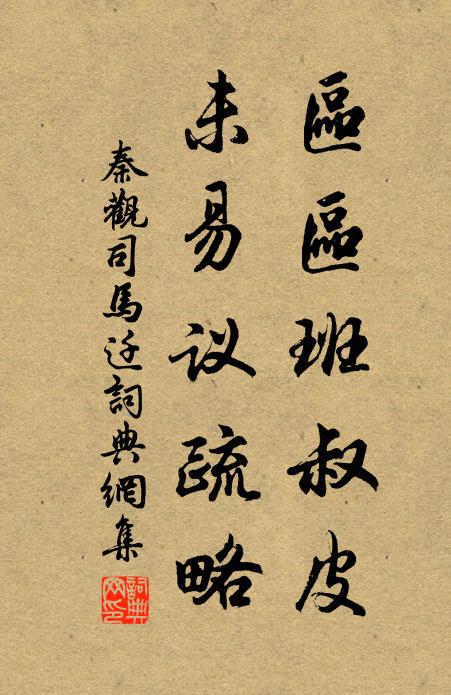 區區班叔皮
未易议疏略
秦觀司馬迁詞典網集
詞典網印